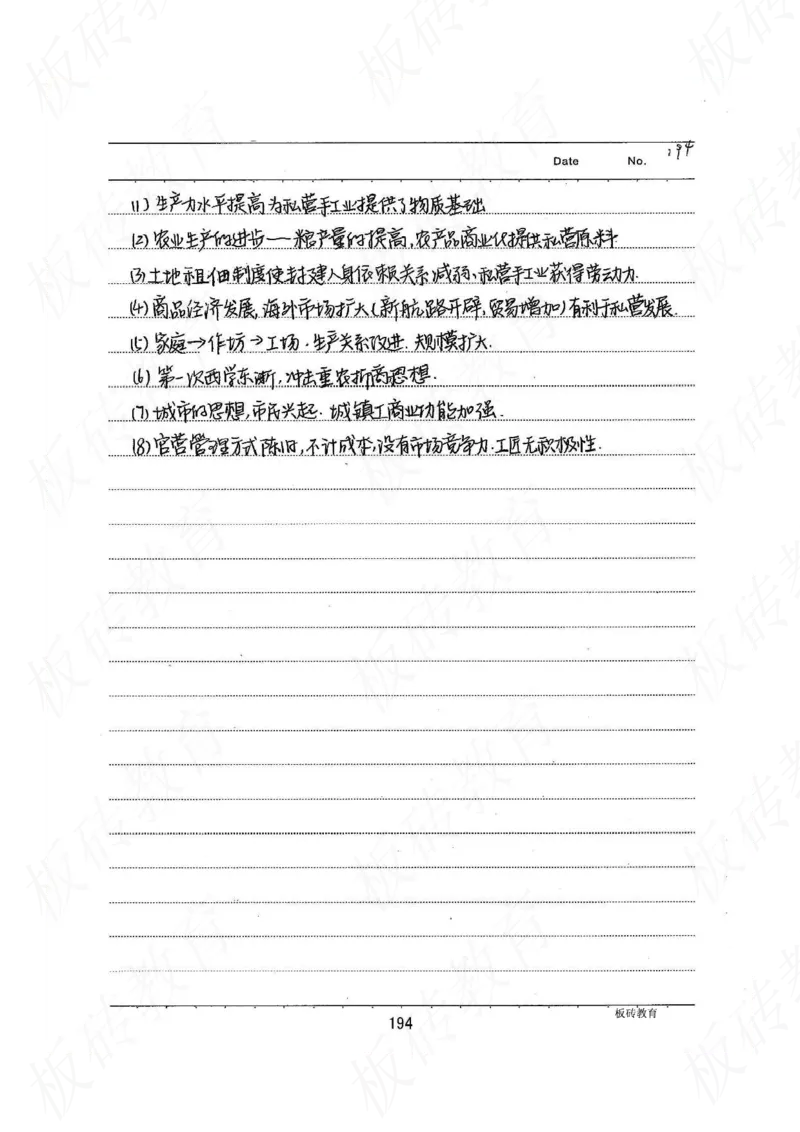 Date No. 194
(1) 生产力水平提高为私营手工业提供了物质基础
(2) 农业生产的进步——粮产量的提高,农产品商业化提供私营原料
(3) 土地租佃制度使封建人身依赖关系减弱、私营手工业获得劳动力.
(4) 商品经济发展,海外市场扩大(新航路开辟,贸易增加)有利于私营发展.
(5) 家庭→作坊→工场.生产关系改进.规模扩大.
(6) 第一次西学东渐,冲击重农抑商思想.
(7) 城市的思想,市民兴起.城镇工商业功能加强.
(8) 官营管理方式陈旧,不计成本,没有市场竞争力.工匠无积极性.
板砖教育
194